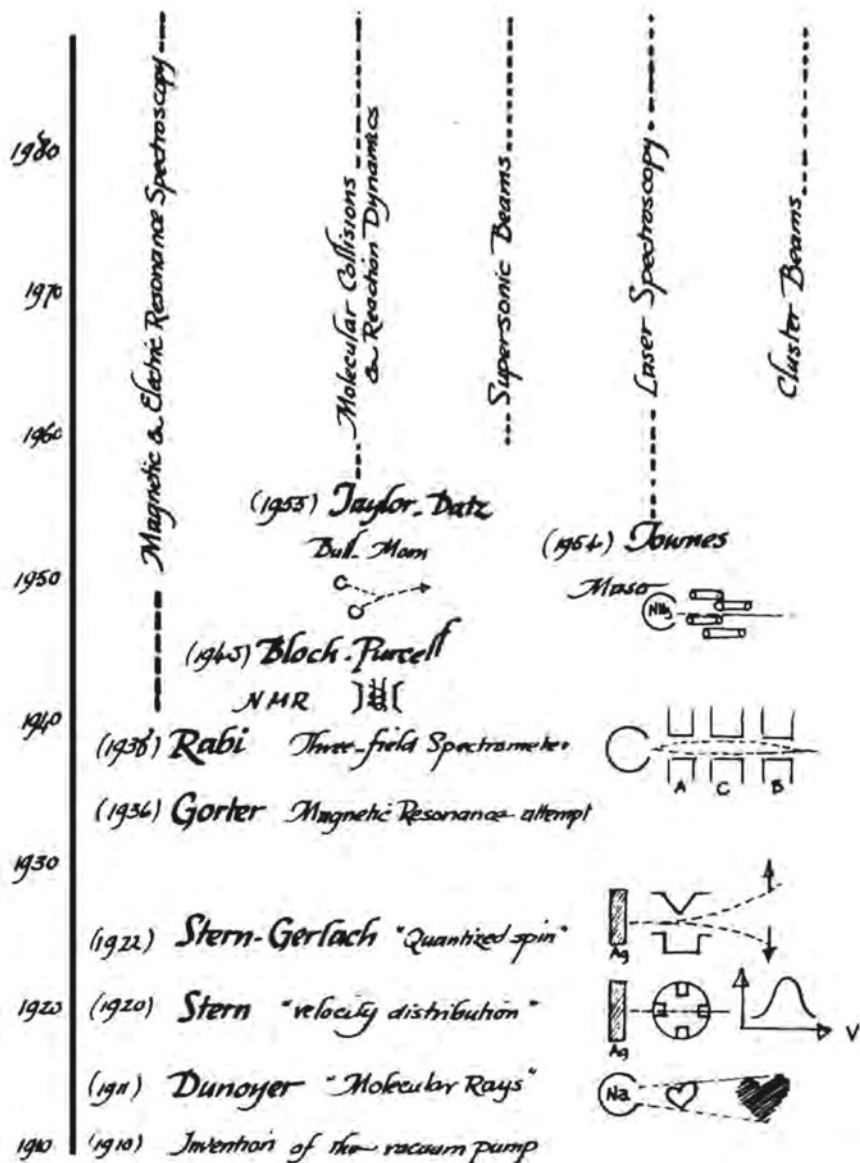 Magnetic & Electric Resonance Spectroscopy
Molecular Collisions
& Reaction Dynamics
Supersonic Beams
Laser Spectroscopy
Cluster Beams
1980
1970
1960
(1955) Taylor-Datz
Bull- Mom
(1954) Townes
1950
Maser
NH3
(1945) Bloch-Purcell
NMR
1940
(1938) Rabi Three-field Spectrometer
A C B
(1936) Gorter Magnetic Resonance attempt
1930
(1922) Stern-Gerlach "Quantized spin"
Ag
1920
(1920) Stern "velocity distribution"
Ag
V
(1911) Dunoyer "Molecular Rays"
Na
1910
(1910) Invention of the vacuum pump